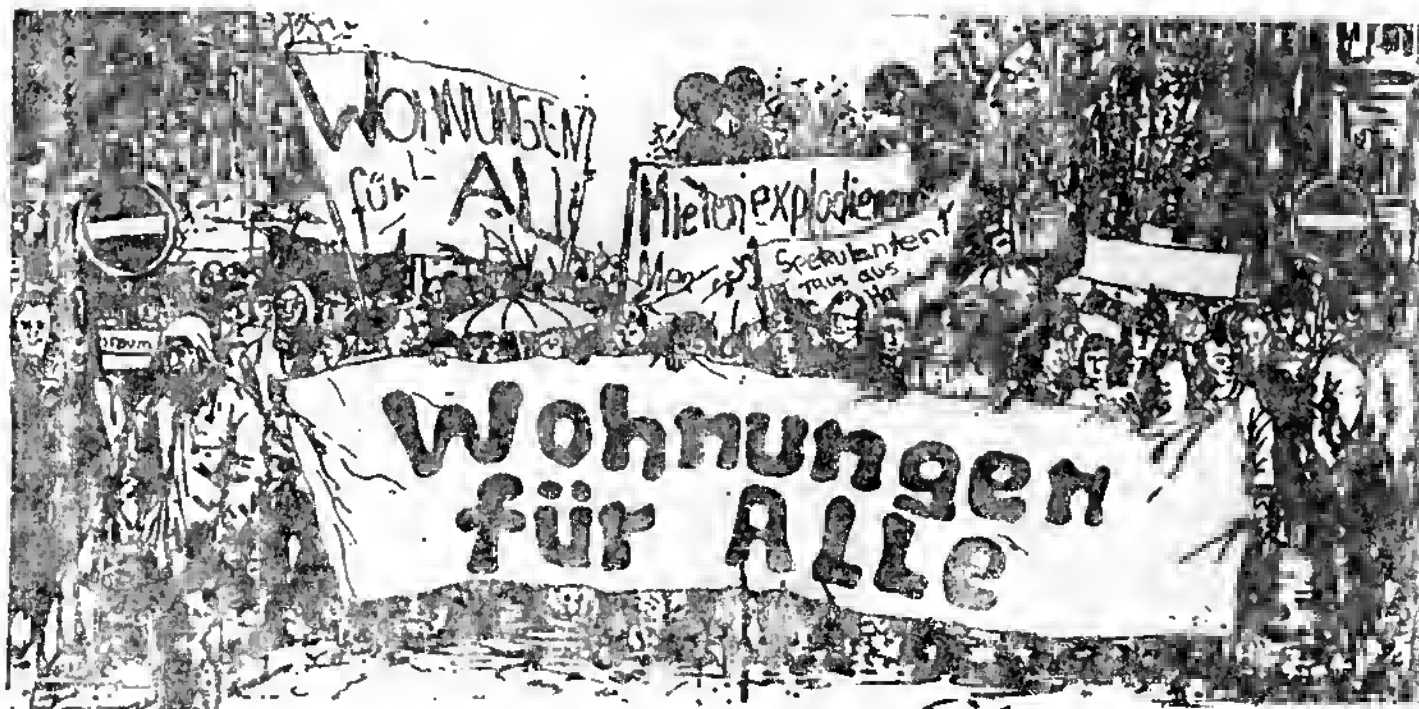 WOHNUNGEN
für ALLE
Mieten explodieren
Spekulanten
raus aus
Wohnungen
für ALLe